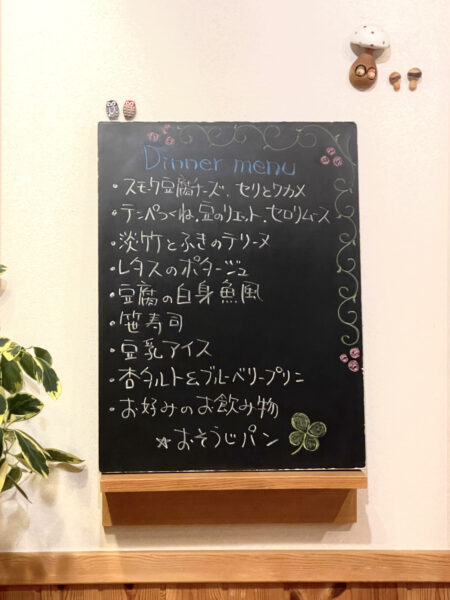 Dinner menu
・スモーク豆腐チーズ、セリとワカメ
・テンペつくね、豆のリエット、セロリムース
・淡竹とふきのテリーヌ
・レタスのポタージュ
・豆腐の白身魚風
・笹寿司
・豆乳アイス
・杏タルト&ブルーベリープリン
・お好みのお飲み物
☆おそうじパン